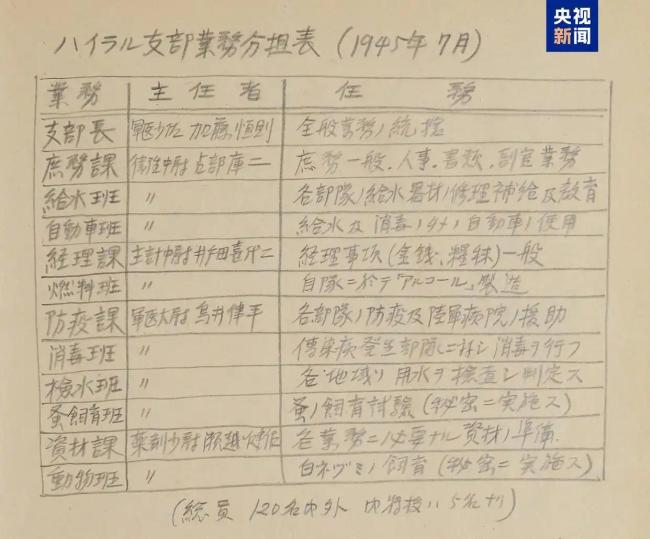 央视
新闻
ハイラル支部業務分担表 (1945年7月)
業務 主任者 任務
支部長 軍医少佐 加藤恒則 全般業務ノ統括
庶務課 衛生中尉 占部庫二 庶務一般、人事、書類、副官業務
給水班 〃 各部隊ノ給水器材ノ修理補給及教育
自動車班 〃 給水及消毒ノタメノ自動車ノ使用
経理課 主計中尉 井田喜代二 経理事項(金銭、糧秣)一般
燃料班 〃 自隊ニ於テ「アルコール」製造
防疫課 軍医大尉 鳥井偉平 各部隊ノ防疫及陸軍病院ノ援助
消毒班 〃 傳染病発生部隊ニ対シ消毒ヲ行フ
検水班 〃 各地域ノ用水ヲ検査シ判定ス
蚤飼育班 〃 蚤ノ飼育試験(秘密ニ実施ス)
資材課 薬剤少尉 各業務ニ必要ナル資材ノ準備.
動物班 〃 白ネヅミノ飼育(秘密ニ実施ス)
(総員 120名内外 内将校ハ5名ナリ)